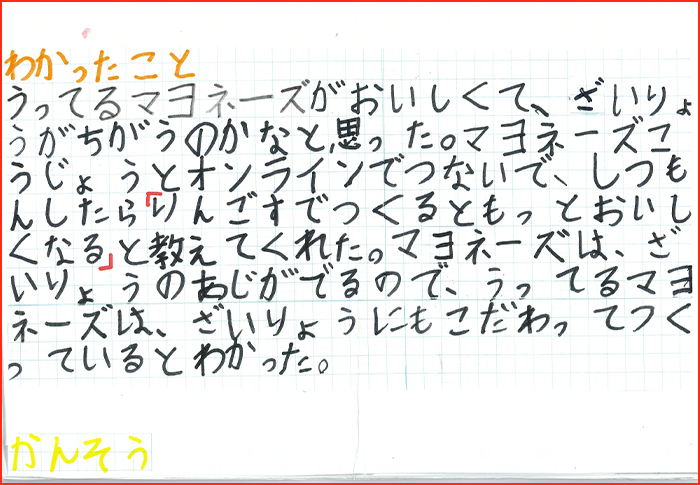 わかったこと
うってるマヨネーズがおいしくて、ざいりょ
うがちがうのかなと思った。マヨネーズこ
うじょうとオンラインでつないで、しつも
んしたら「りんごすでつくるともっとおいし
くなる」と教えてくれた。マヨネーズは、ざ
いりょうのあじがでるので、うってるマヨ
ネーズは、ざいりょうにもこだわってつく
っているとわかった。
かんそう